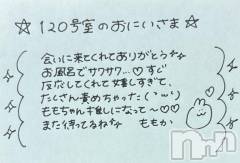 ☆ 120号室のおにいさま ☆
会いに来てくれてありがとう♡
お風呂でサワサワ…♡すぐ
反応してくれて嬉しすぎて、
たくさん責めちゃった(˙ω˙)
ももちゃん推しになって～♡♡
また待ってるね♡ ももか